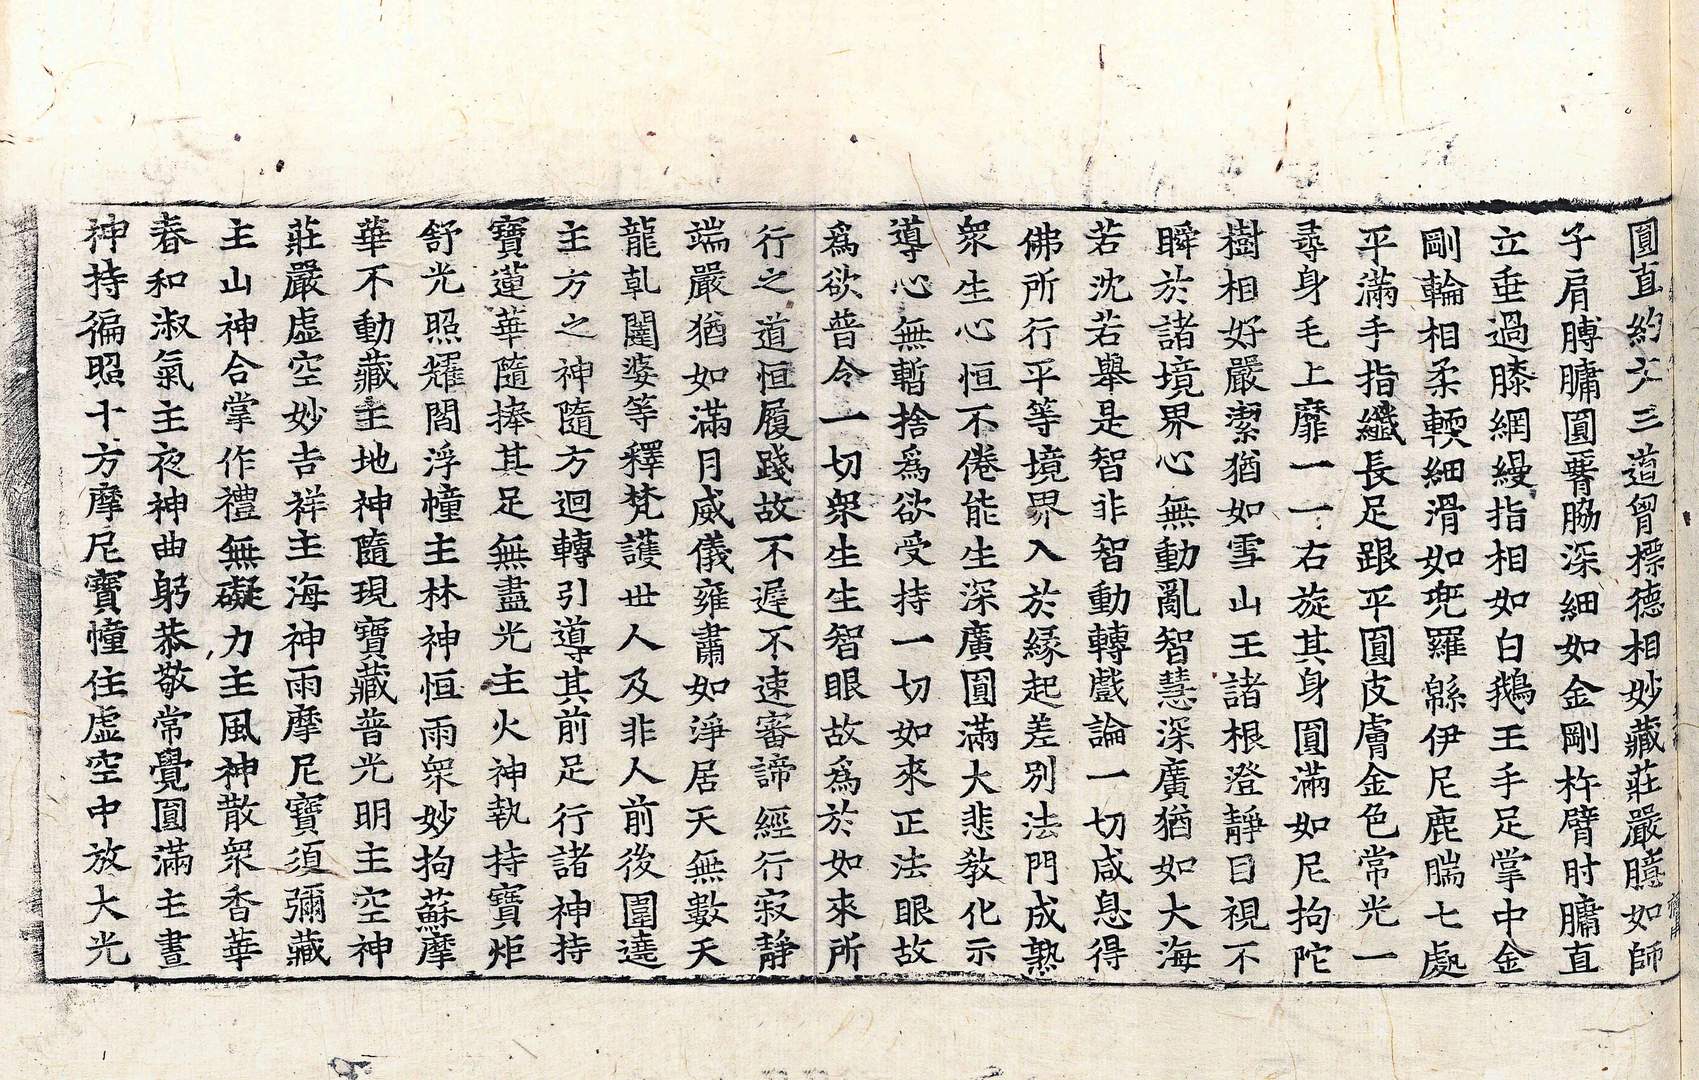 圓直約文三道胷標德相妙藏莊嚴臆如師
子肩膊𦟛圓䐡脇深細如金剛杵臂肘𦟛直
立垂過膝網縵指相如白鵝王手足掌中金
剛輪相柔輭細滑如兜羅緜伊尼鹿腨七處
平滿手指纖長足跟平圓皮膚金色常光一
尋身毛上靡一一右旋其身圓滿如尼拘陀
樹相好嚴潔猶如雪山王諸根澄靜目視不
瞬於諸境界心無動亂智慧深廣猶如大海
若沈若舉是智非智動轉戲論一切咸息得
佛所行平等境界入於縁起差別法門成熟
衆生心恒不倦能生深廣圓滿大悲教化示
導心無暫捨爲欲受持一切如來正法眼故
爲欲普令一切衆生生智眼故爲於如來所
行之道恒履踐故不遲不速審諦經行寂靜
端嚴猶如滿月威儀雍肅如淨居天無數天
龍乹闥婆等釋梵護世人及非人前後圍遶
主方之神隨方迴轉引導其前足行諸神持
寶蓮華隨捧其足無盡光主火神執持寶炬
舒光照耀閻浮幢主林神恒雨衆妙拘蘇摩
華不動藏主地神隨現寶藏普光明主空神
莊嚴虛空妙吉祥主海神雨摩尼寶須彌藏
主山神合掌作禮無礙力主風神散衆香華
春和淑氣主夜神曲躬恭敬常覺圓滿主晝
神持徧照十方摩尼寶幢住虛空中放大光